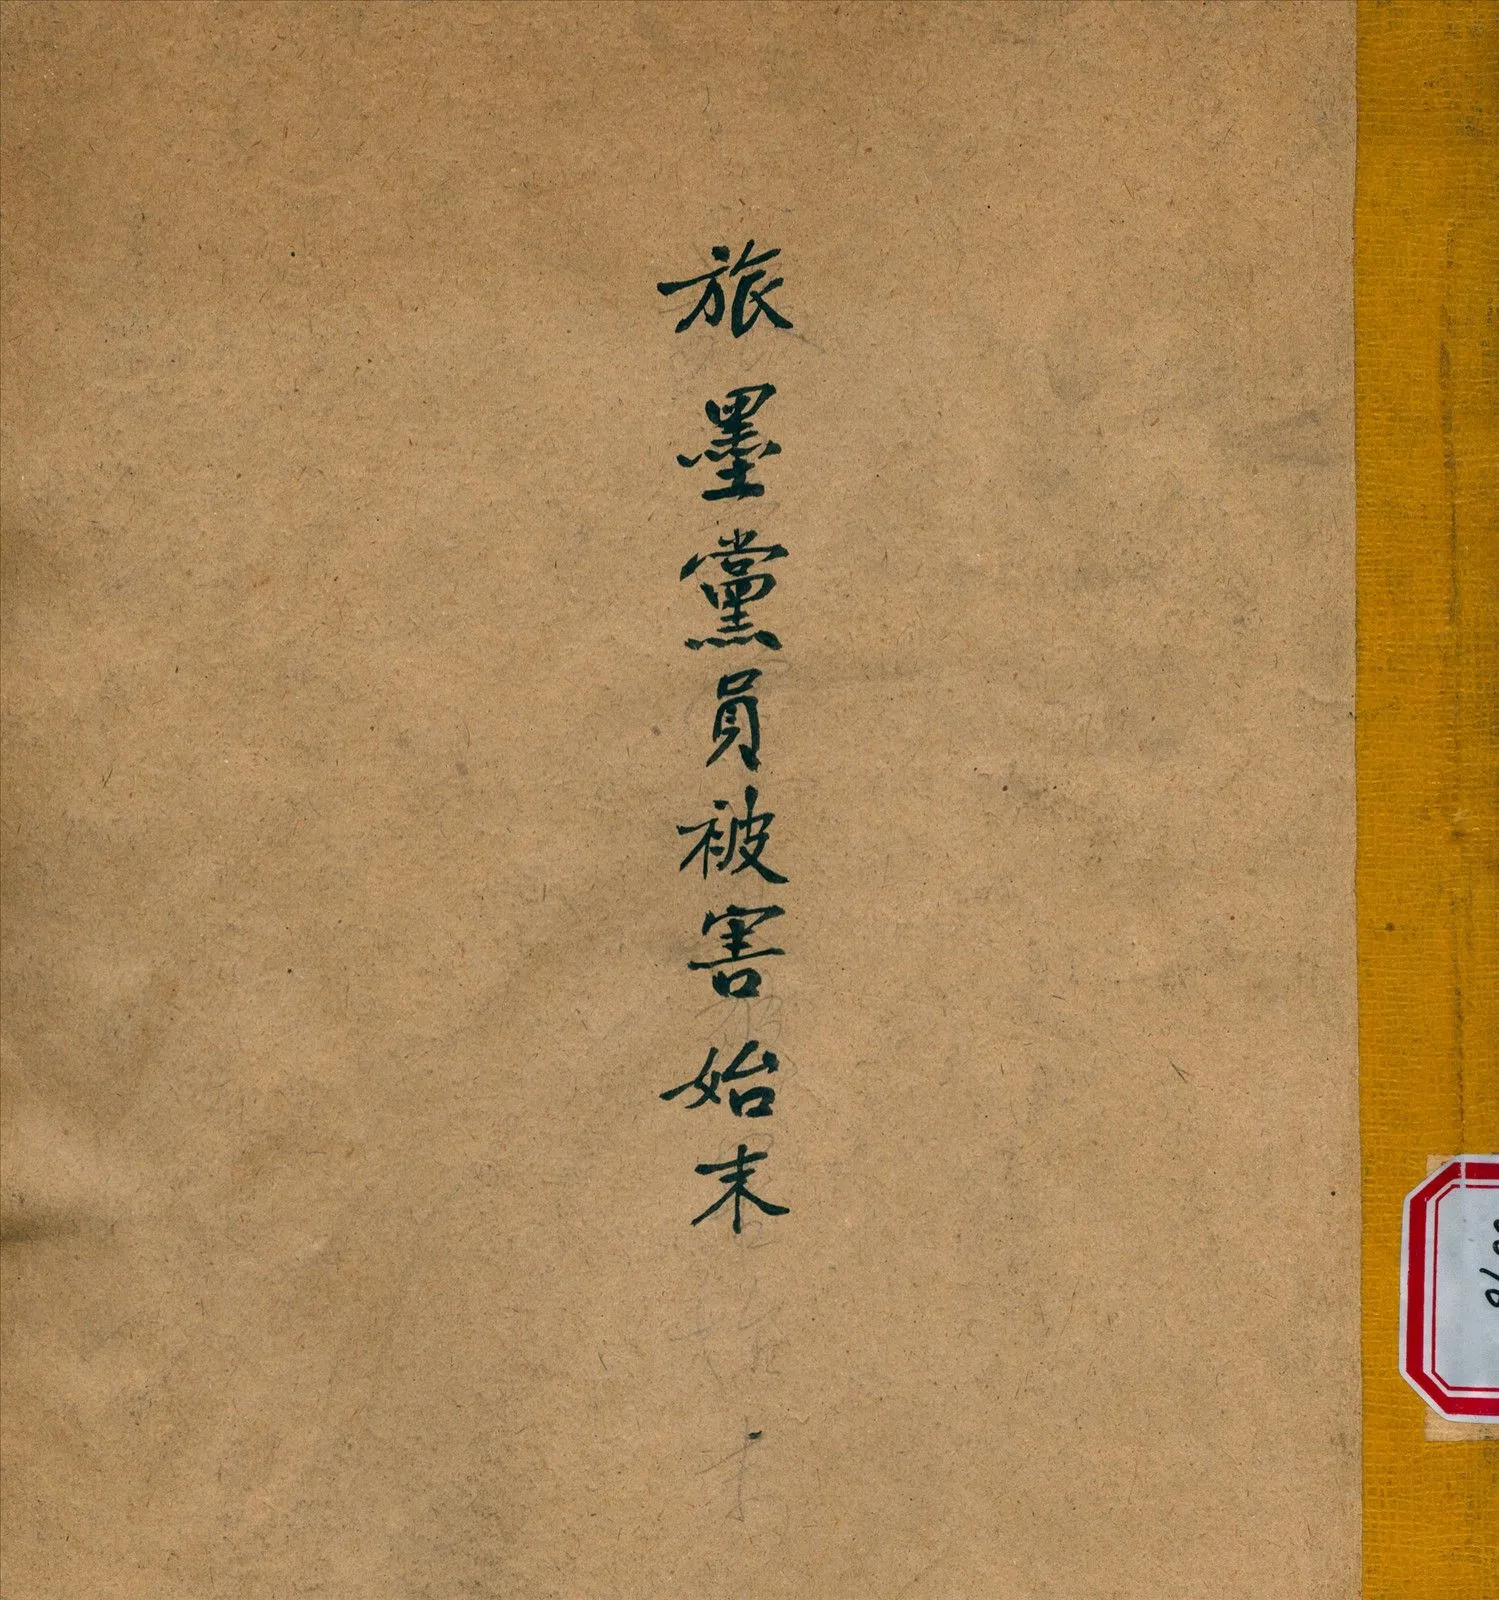 旅墨黨員被害始末